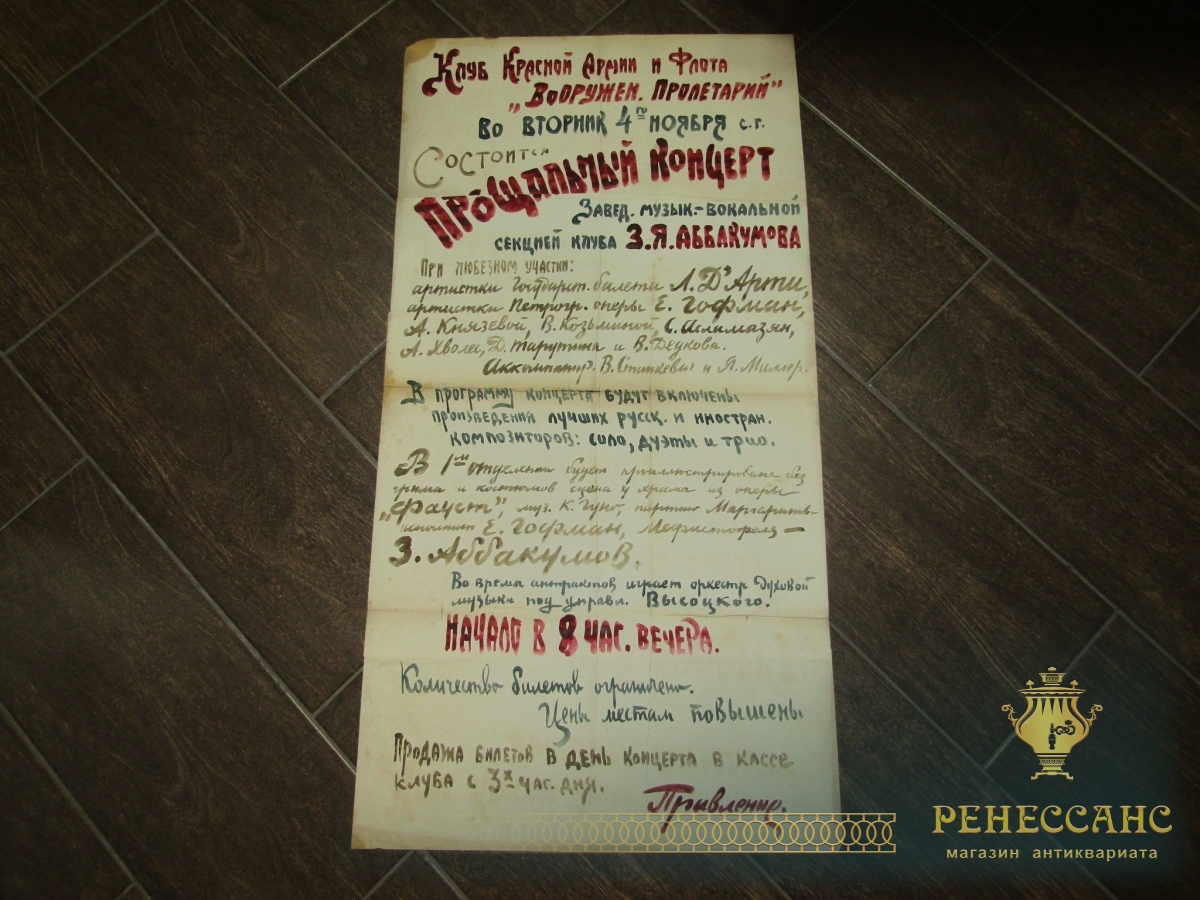 Клуб Красной Армии и Флота
„Вооружен. Пролетарий"
Во вторник 4го ноября с.г.
Состоится
Прощальный концерт
Завед. музык.-вокальной
секцией клуба З.Я. Аббакумова
При любезном участии:
артистки Государст. балета Л. Д'Арти,
артистки Петрогр. оперы Е. Гофман,
А. Князевой, В. Козьминой, С. Асламазян,
А. Хволес, Д. Тарутина и В.
Аккомпанир. В. и Я. Миллер.
В программу концерта будут включены
произведения лучших русск. и иностран.
композиторов: соло, дуэты и трио.
В 1ом отделении будет проиллюстрирована без
грима и костюмов сцена у храма из оперы
„Фауст", муз. К. Гуно, партию Маргариты-
исполнит Е. Гофман, Мефистофеля —
З. Аббакумов.
Во время антрактов играет оркестр духовой
музыки под управл. Высоцкого.
Начало в 8 час. вечера.
Количество билетов ограничено.
Цены местам повышены
Продажа билетов в день концерта в кассе
клуба с 3х час. дня.
РЕНЕССАНС
магазин антиквариата